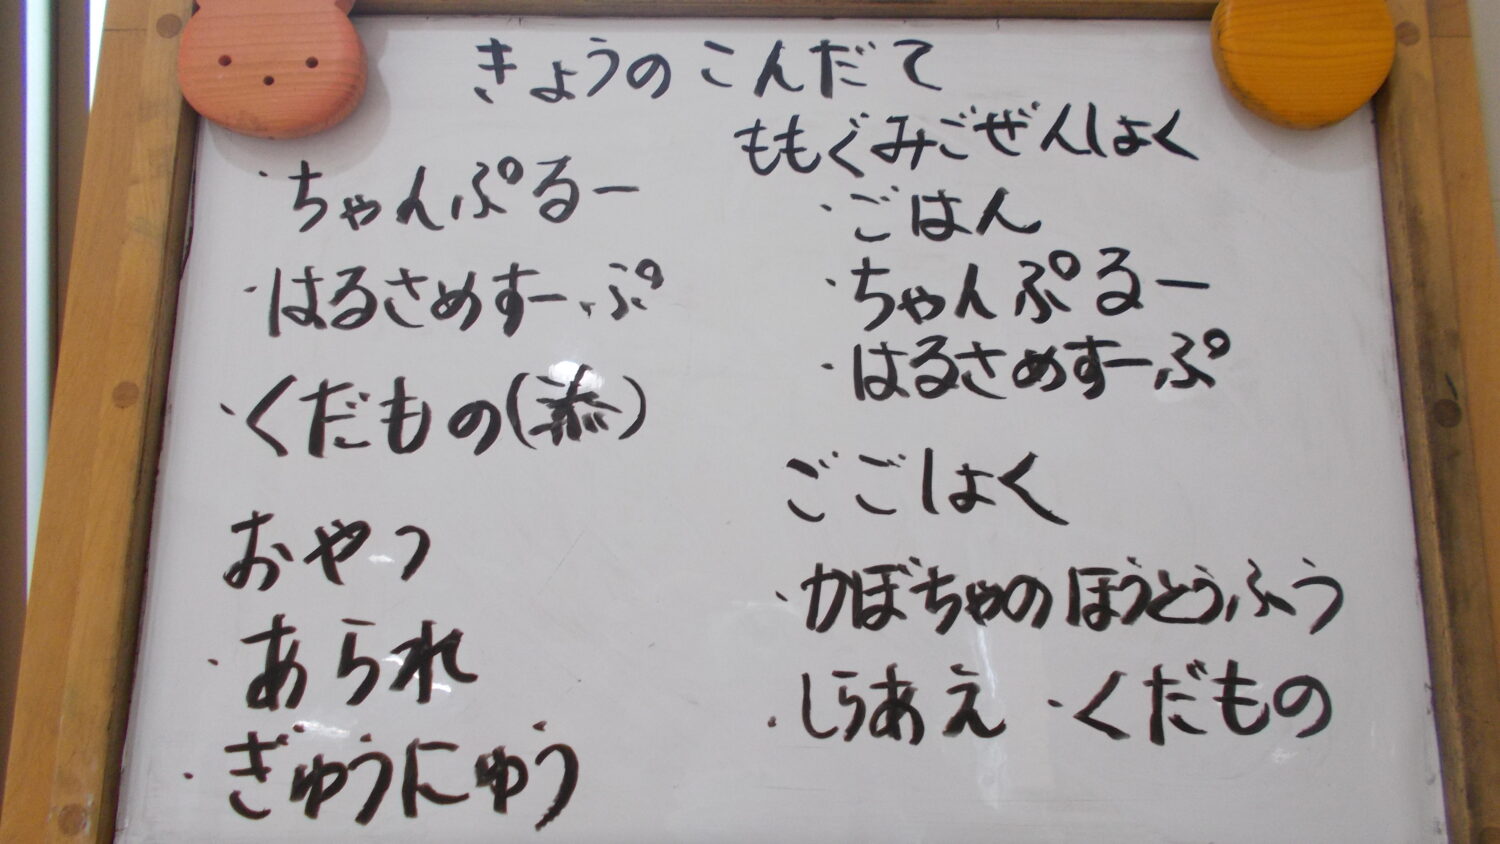 きょうのこんだて
・ちゃんぷるー
・はるさめすーぷ
・くだもの()
おやつ
・あられ
・ぎゅうにゅう
ももぐみごぜんしょく
・ごはん
・ちゃんぷるー
・はるさめすーぷ
ごごしょく
・かぼちゃのほうとうふう
・しらあえ ・くだもの